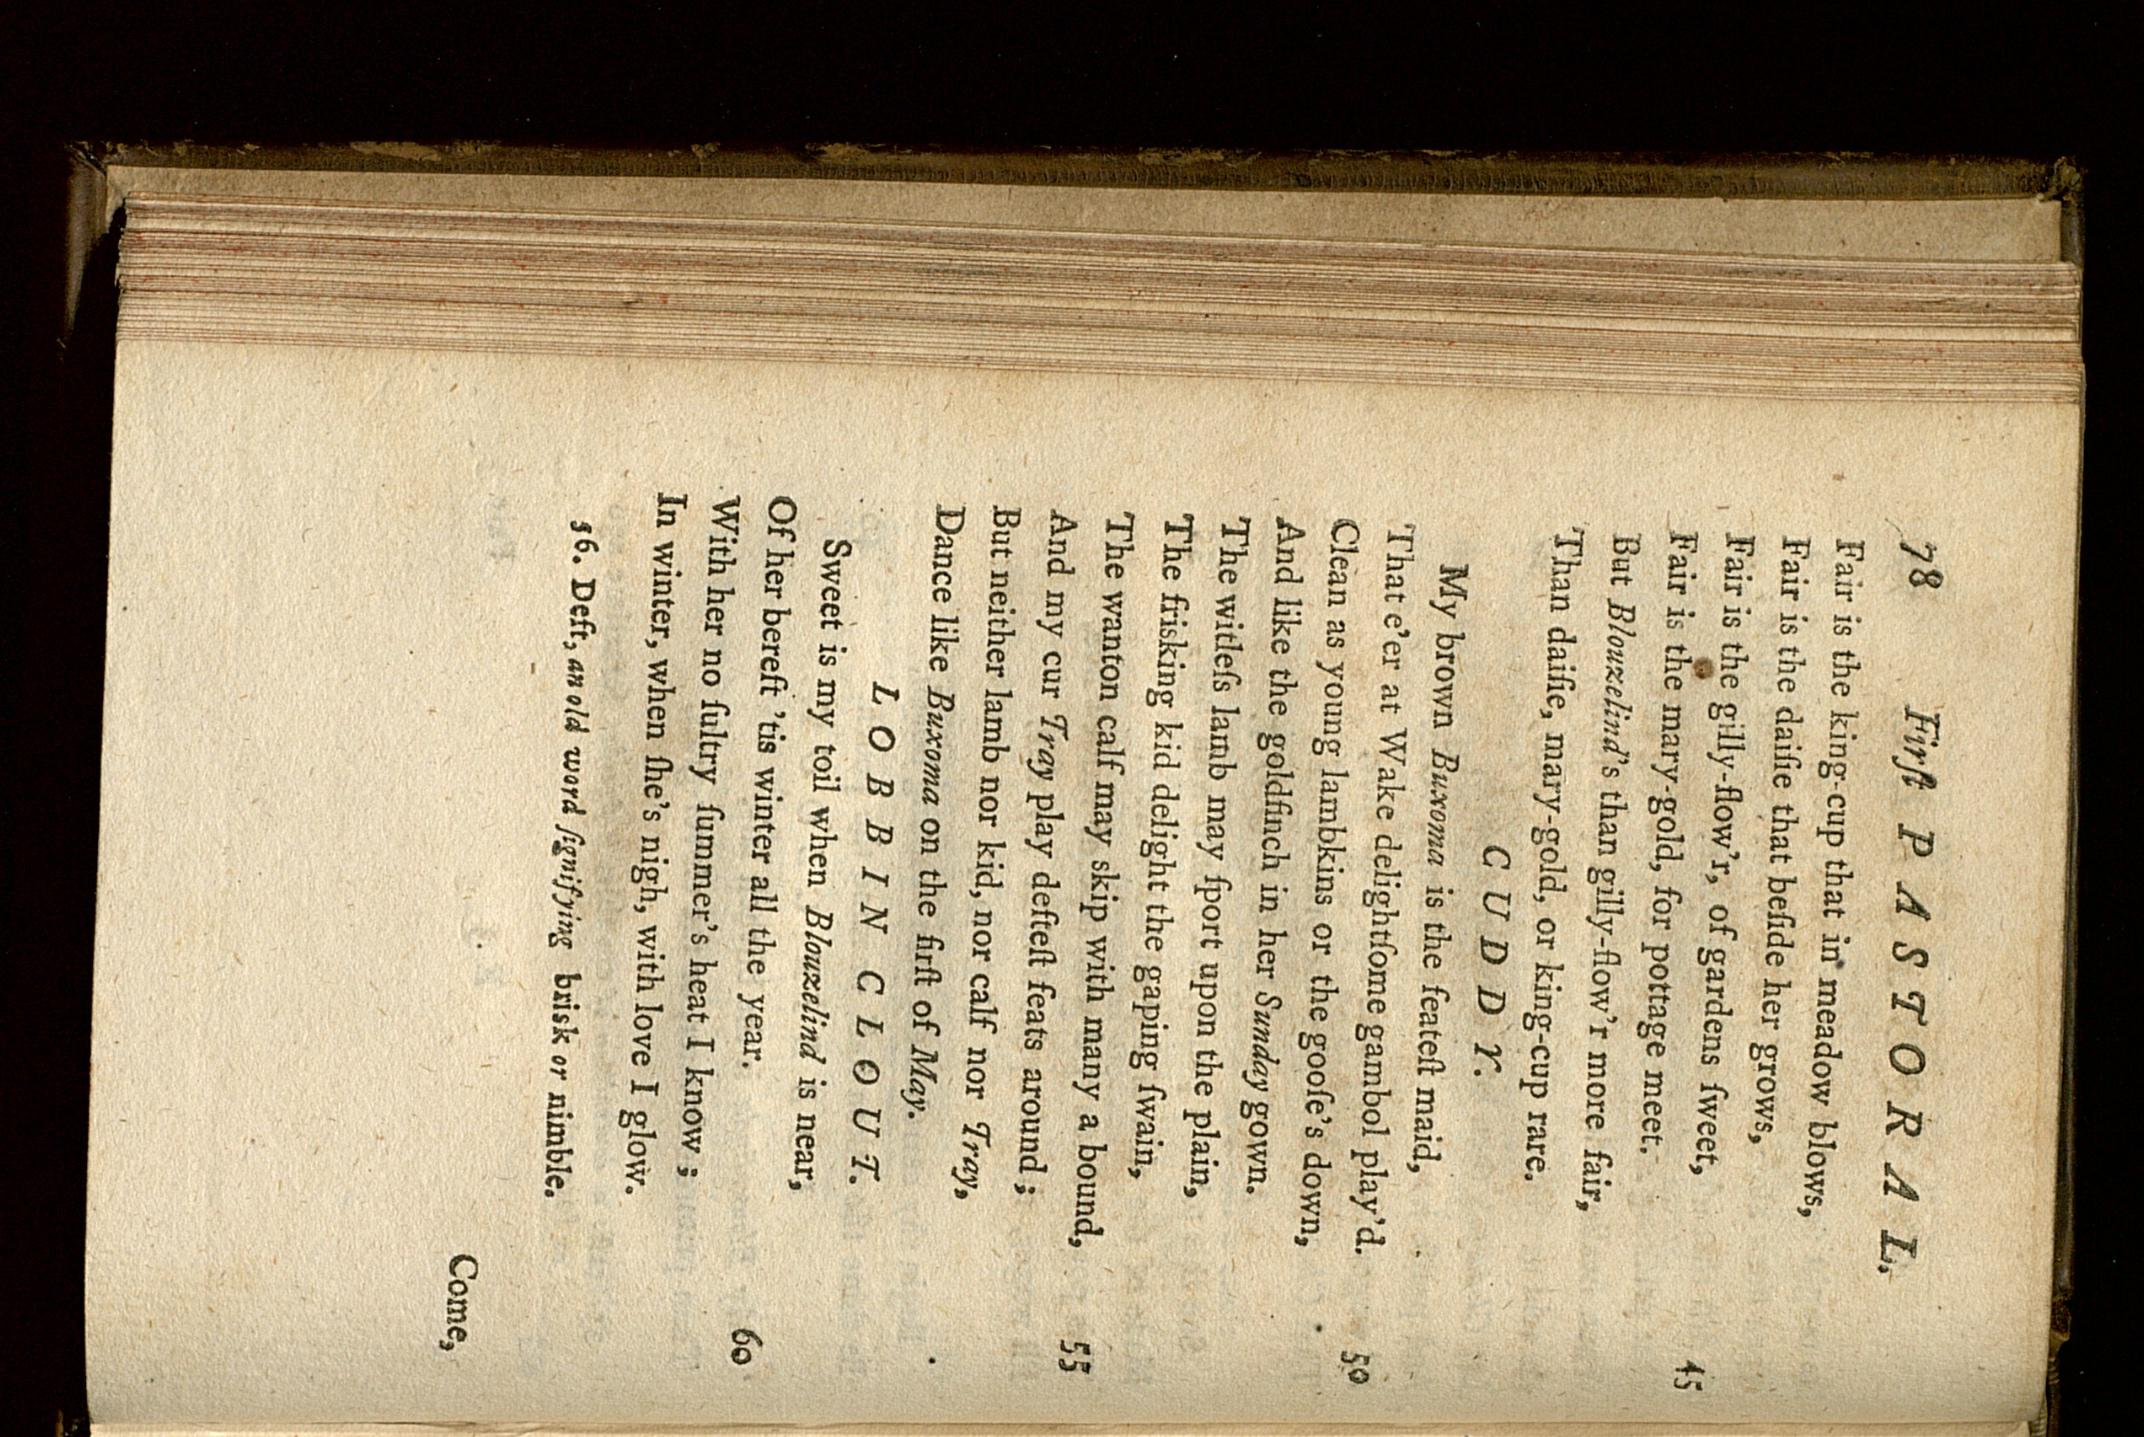 78 Firſt PASTORAL.
Fair is the king-cup that in meadow blows,
Fair is the daiſie that beſide her grows,
Fair is the gilly-flow'r, of gardens ſweet,
Fair is the mary-gold, for pottage meet. 45
But Blouzelind's than gilly-flow'r more fair,
Than daiſie, mary-gold, or king-cup rare.
CUDDY.
My brown Buxoma is the feateſt maid,
That e'er at Wake delightſome gambol play'd.
Clean as young lambkins or the gooſe's down, 50
And like the goldfinch in her Sunday gown.
The witleſs lamb may ſport upon the plain,
The frisking kid delight the gaping ſwain,
The wanton calf may skip with many a bound,
And my cur Tray play defteſt feats around; 55
But neither lamb nor kid, nor calf nor Tray,
Dance like Buxoma on the firſt of May.
LOBBIN CLOUT.
Sweet is my toil when Blouzelind is near,
Of her bereft 'tis winter all the year.
With her no ſultry ſummer's heat I know; 60
In winter, when ſhe's nigh, with love I glow.
56. Deft, an old word ſignifying brisk or nimble.
Come,